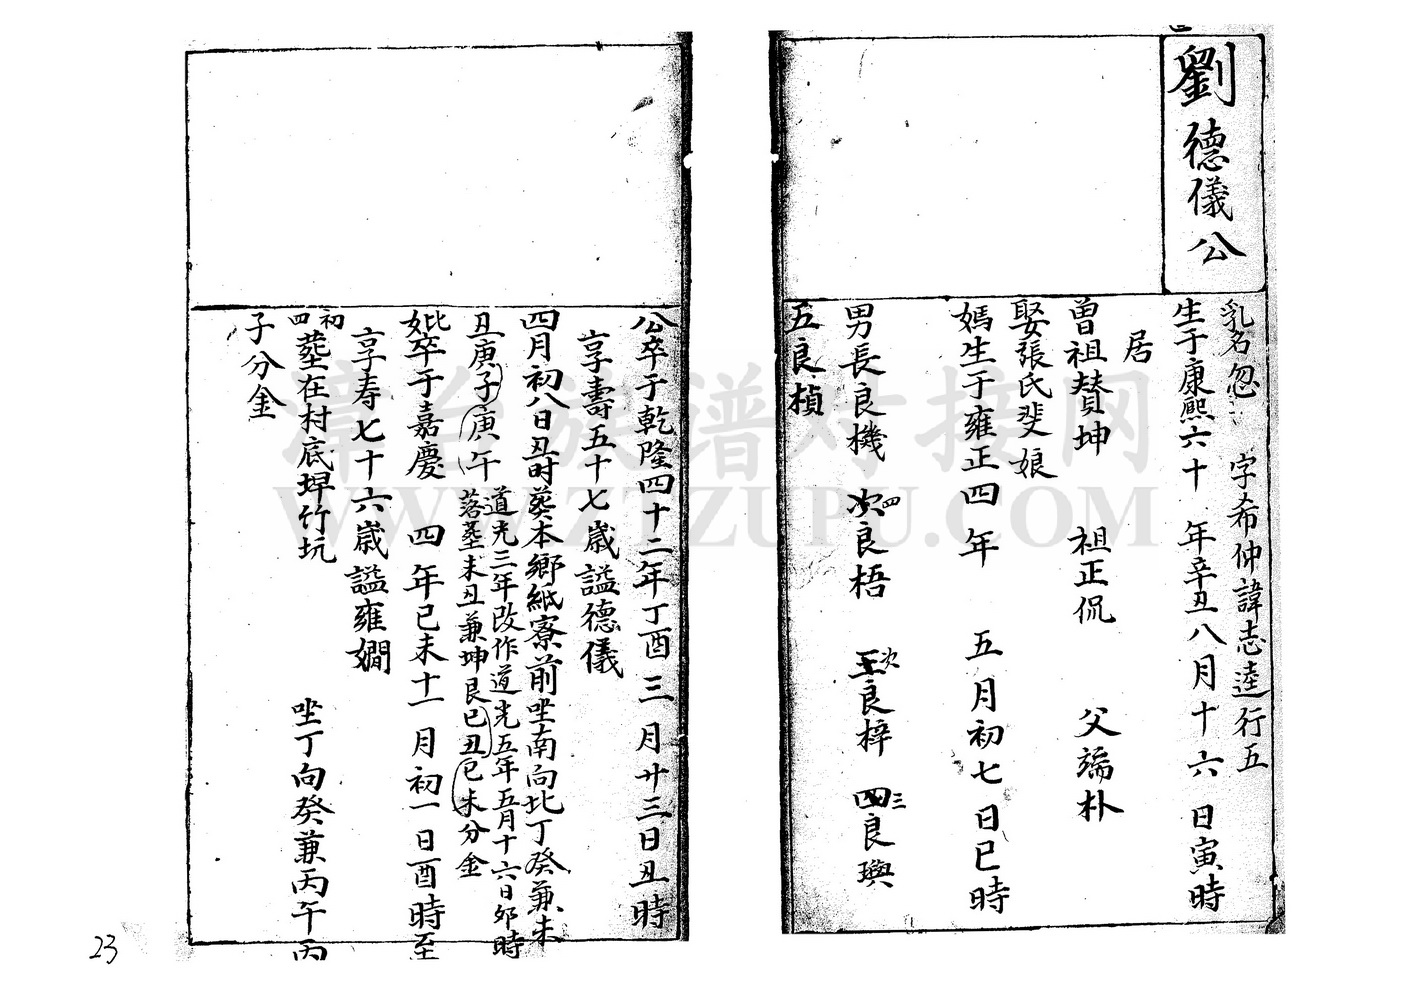 劉德儀公
乳名忽 字希仲諱志逵行五
生于康熙六十 年辛丑八月十六 日寅時
居
曾祖贊坤 祖正侃 父端朴
娶張氏斐娘
媽生于雍正四 年 五月初七日巳時
男長良機 次四良梧 五次良梓 四三良璵
五良楨
公卒于乾隆四十二年丁酉三月廿三日丑時
享壽五十七歲謚德儀
四月初八日丑时葵本鄉紙寮前坐南向北丁癸兼未
丑庚子庚午 道光三年改作道光五年五月十六日卯時
落塟未丑兼坤艮己丑己未分金
妣卒于嘉慶 四年已未十一月初一日酉時至
享寿七十六歲謚雍嫺
初四塟在村底垾竹坑 坐丁向癸兼丙午丙
子分金
23
漳台族谱对接网
WWW.ZTZUPU.COM